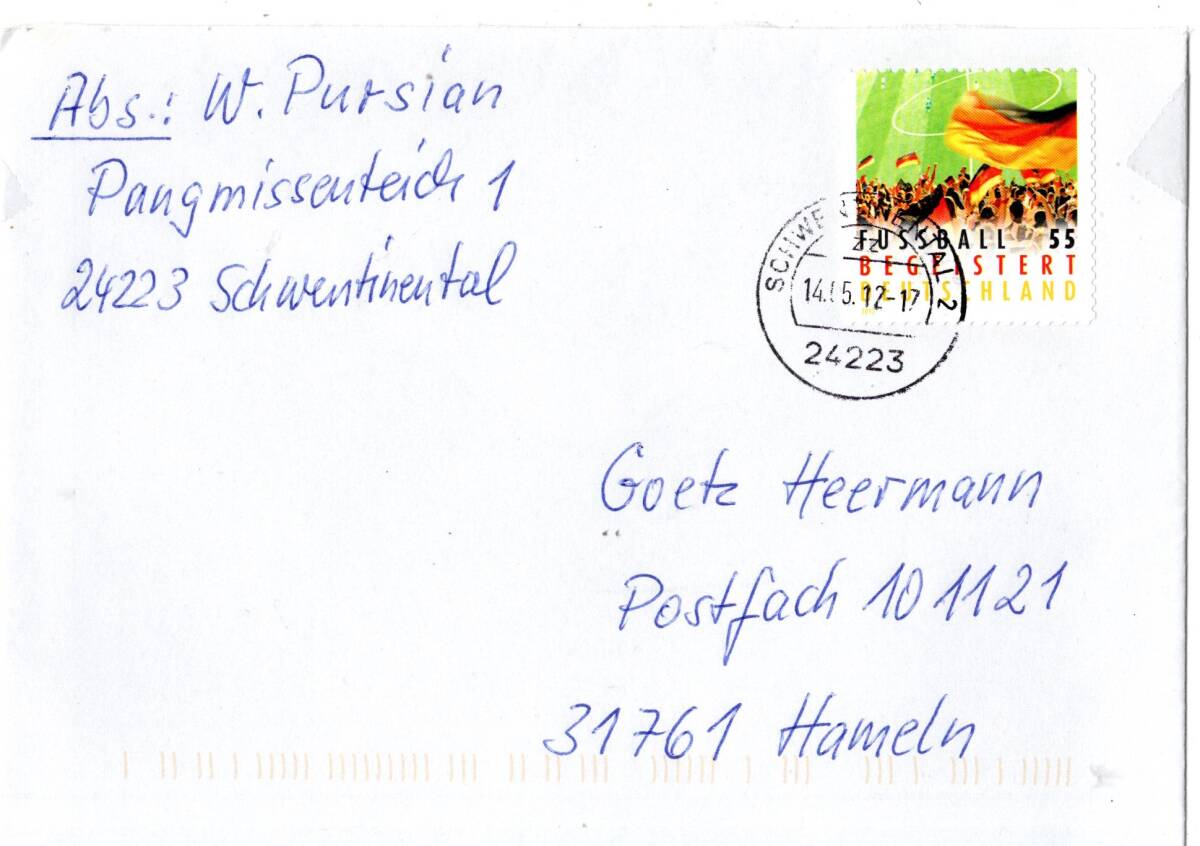 Abs.: W. Pursian
Pangmissenteich 1
24223 Schwentinental
FUSSBALL 55
BEGEISTERT
DEUTSCHLAND
SCHWENTINENTAL 2
zz
14.05.12-17
24223
Goetz Heermann
Postfach 101121
31761 Hameln